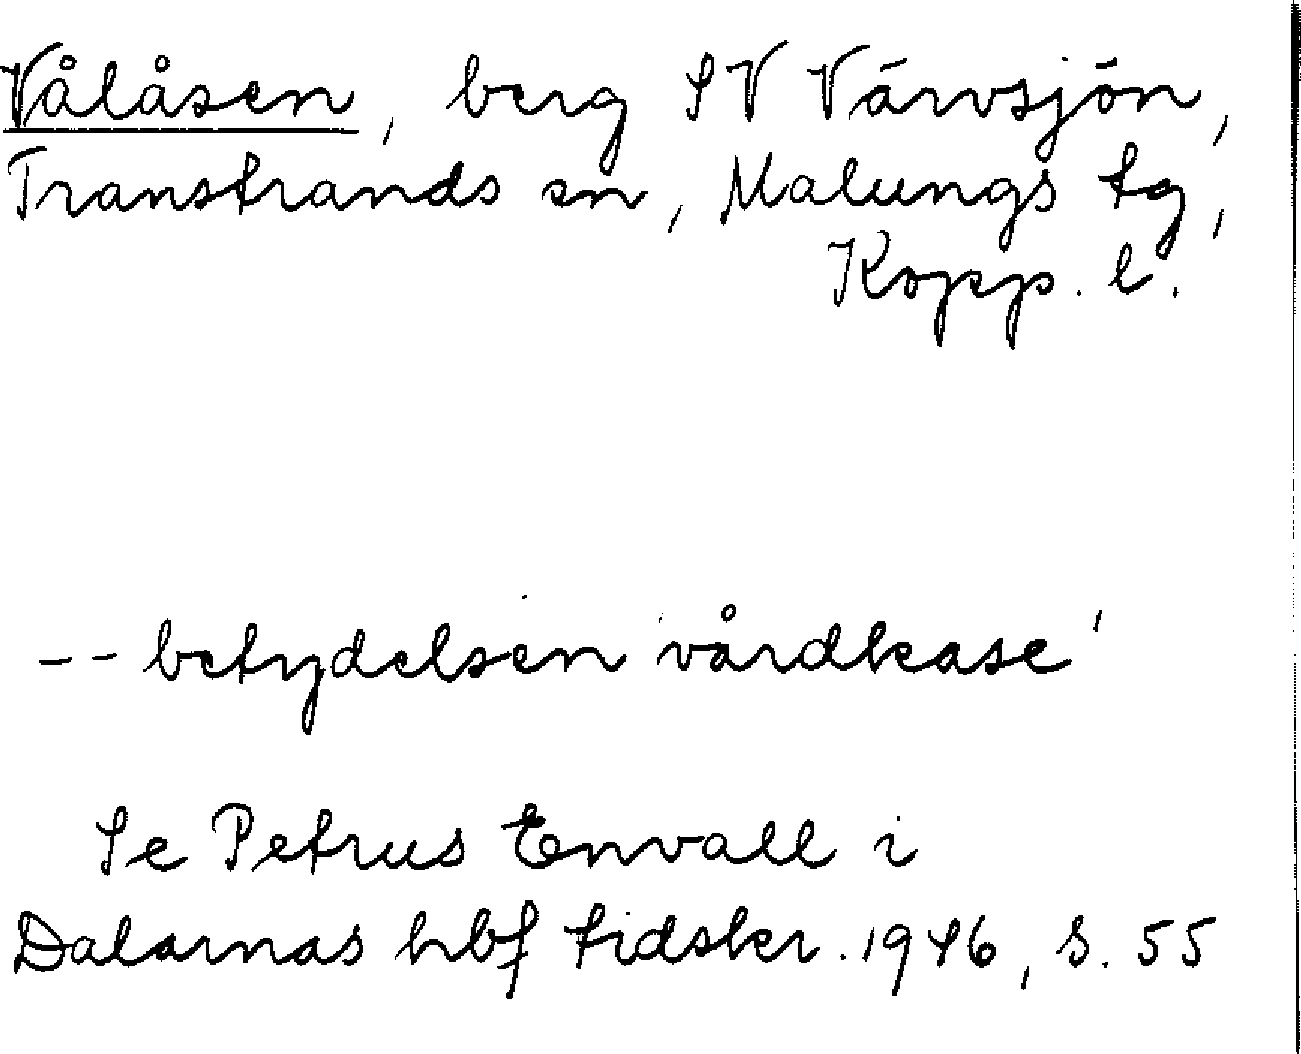 Vålåsen, berg SV Värvsjön,
Transtrands sn, Malungs tg,
Kopp. l.
-- betydelsen 'vårdkase'
Se Petrus Envall i
Dalarnas hbf tidskr. 1946, s. 55